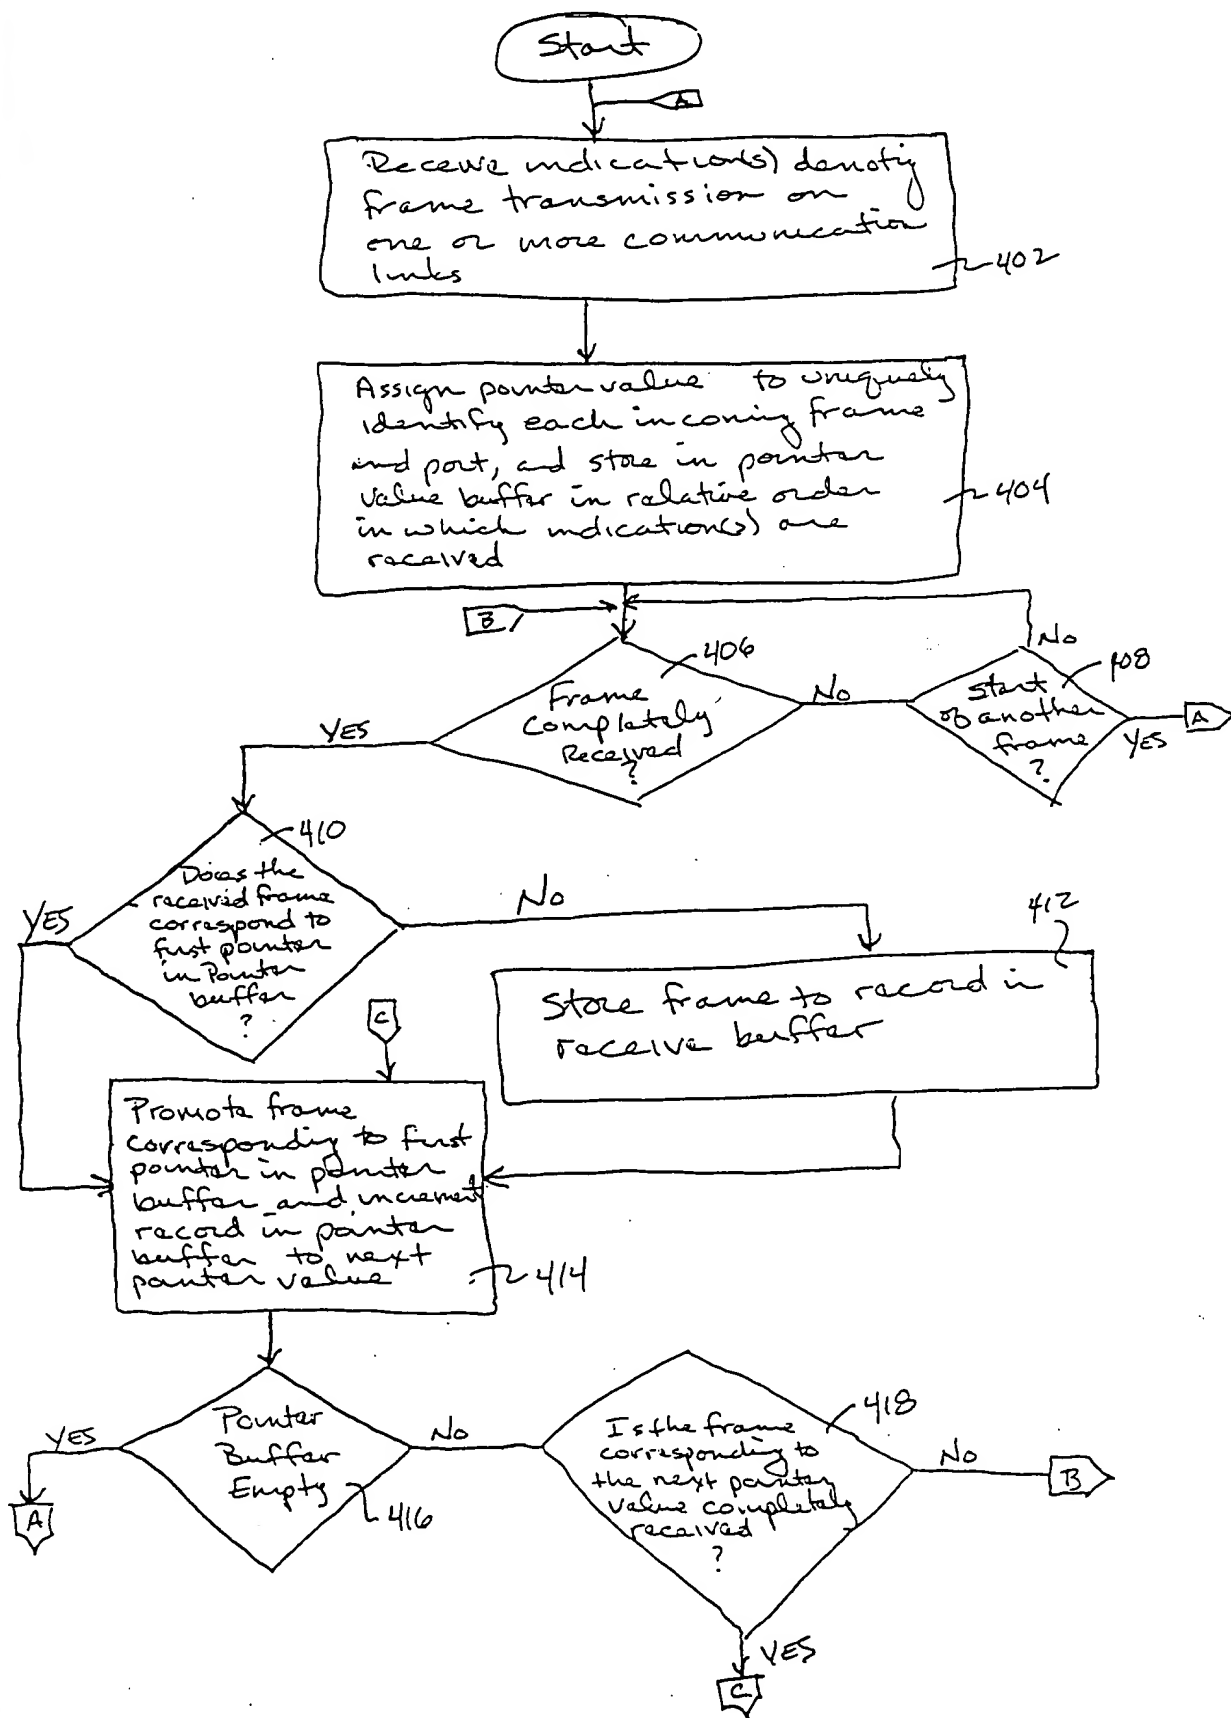 Start
A
Receive indication(s) denoting
frame transmission on
one or more communication
links
402
Assign pointer value to uniquely
identify each incoming frame
and port, and store in pointer
value buffer in relative order
in which indication(s) are
received
404
B
No
406
408
Frame
Completely
Received
?
No
Start
of another
frame
?
A
YES
YES
410
Does the
received frame
correspond to
first pointer
in Pointer
buffer
?
YES
No
412
Store frame to record in
receive buffer
C
Promote frame
corresponding to first
pointer in pointer
buffer and increment
record in pointer
buffer to next
pointer value
414
Pointer
Buffer
Empty
YES
No
416
A
418
Is the frame
corresponding to
the next pointer
value completely
received
?
No
B
YES
C